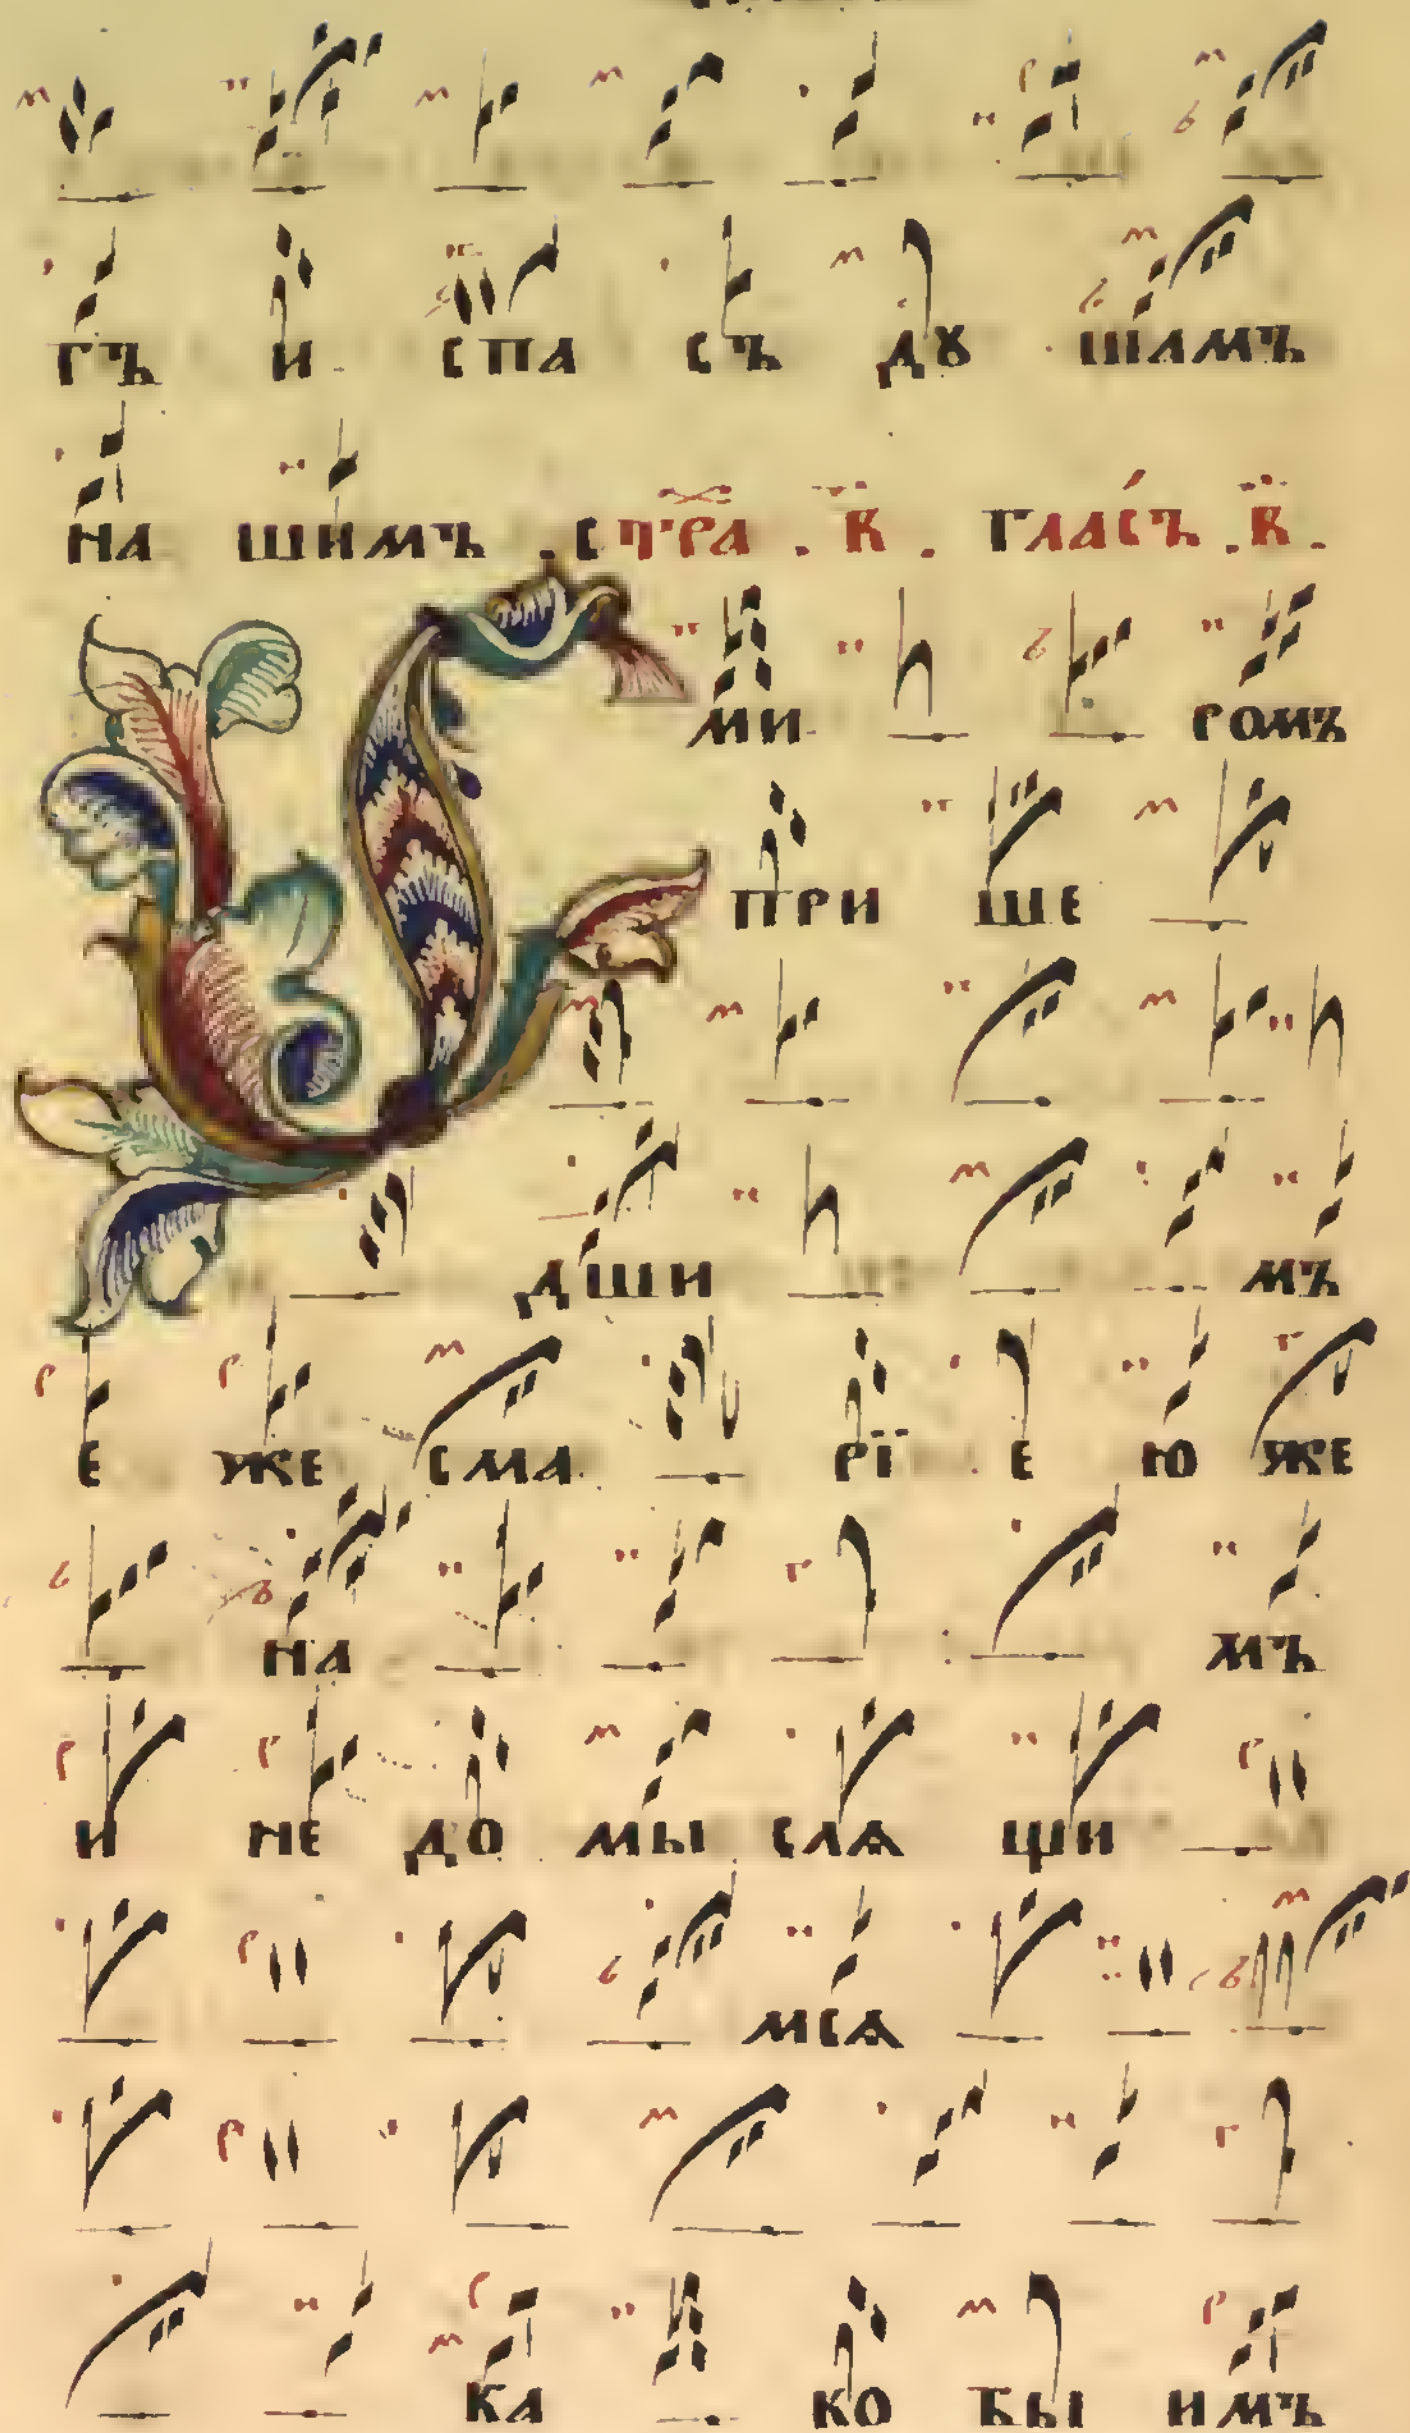 гъ и спа съ дꙋ шамъ
на шимъ . с т҃ра . в҃ . гласъ . в҃ .
С ми ромъ
при ше
дши мъ
е же сма рї е ю же
на мъ
и не до мы слѧ щи
мсѧ
ка ко бы имъ